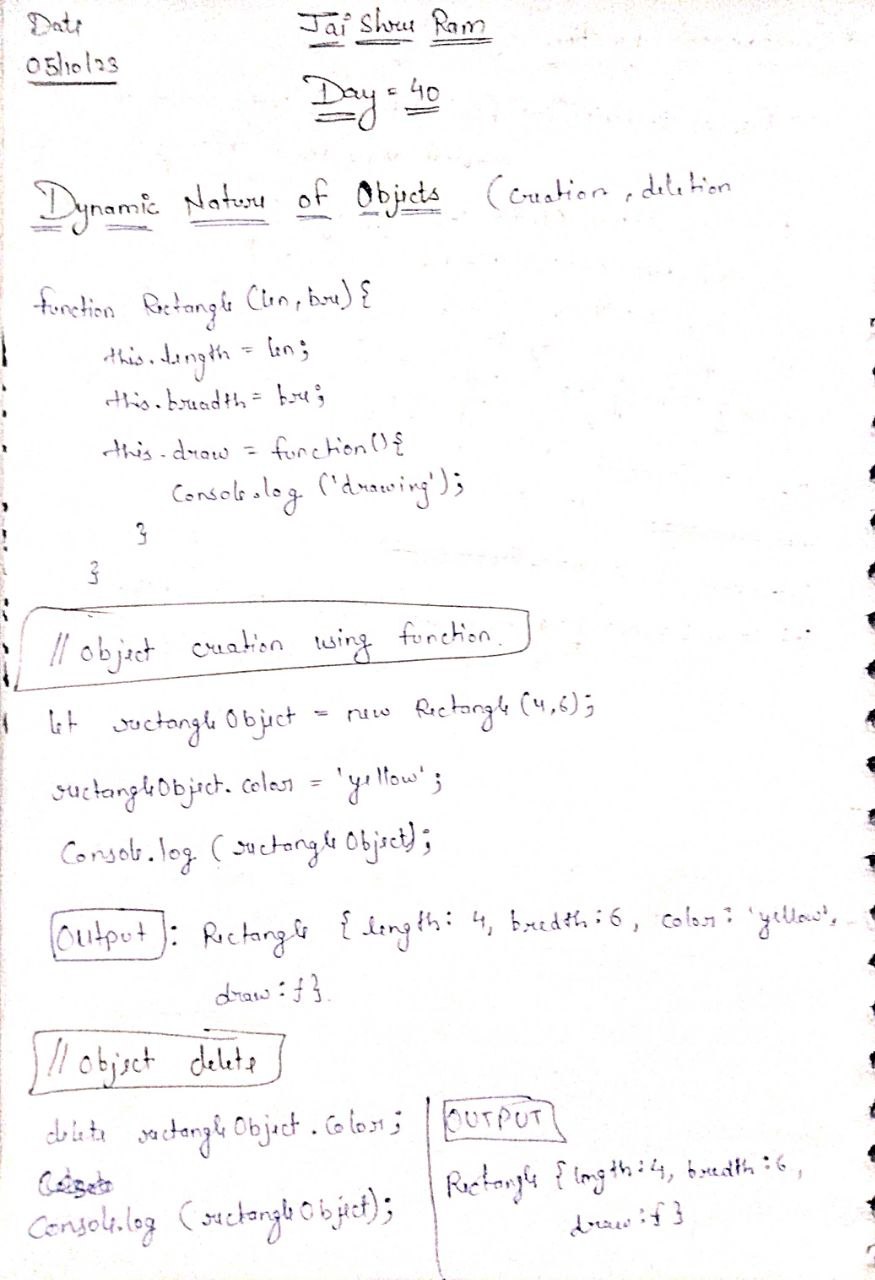 Date
05/10/23
Jai Shree Ram
Day = 40
Dynamic Nature of Objects (creation, deletion
function Rectangle (len, bre) {
this.length = len;
this.breadth = bre;
this.draw = function() {
Console.log ('drawing');
}
}
// object creation using function.
let rectangleObject = new Rectangle (4,6);
rectangleObject.color = 'yellow';
Console.log (rectangleObject);
Output : Rectangle { length: 4, bredth: 6, color: 'yellow',
draw: f }.
// object delete
delete rectangleObject.color;
Console.log (rectangleObject);
OUTPUT
Rectangle { length: 4, bredth: 6,
draw: f }